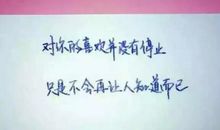 对你的喜欢并没有停止
只是不会再让人知道而已